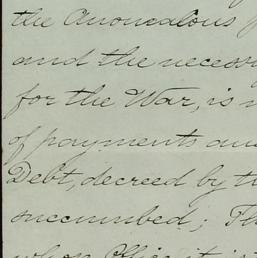 the Anomalous
and the necess
for the War, is
of payments and
Debt, decreed by th
succumbed; Th
whose Office it is